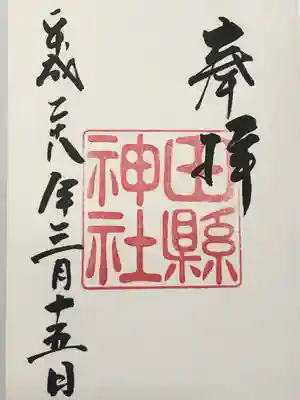 奉拝
田縣
神社
平成二十八年三月十五日